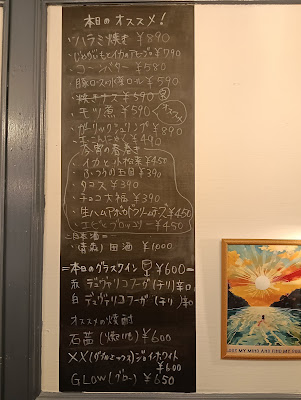 本日のオススメ!
・ハラミ焼き ¥890
・じゃがいもとイカのアヒージョ ¥790
・コーンバター ¥580
・豚ロースの水菜ロール ¥590
・焼きナス ¥590
・モツ煮 ¥590
オススメ
・ガーリックシュリンプ ¥890
・玉こんにゃく ¥490
春宵の春巻き
・イカと小松菜 ¥450
・ふつうの五目 ¥390
・タコス ¥390
・チョコ大福 ¥390
・生ハムアボカドクリームチーズ ¥450
・エビとブロッコリー ¥450
=日本酒=
・(青森) 田酒 ¥1000
=本日のグラスワイン ¥600=
赤 デュヴァリコフーガ (チリ) 辛口
白 デュヴァリコフーガ (チリ) 辛口
オススメの焼酎
石蕗 (燻) ¥600
XX(ダブルエックス)ジョイホワイト
¥600
GLOW (グロー) ¥650